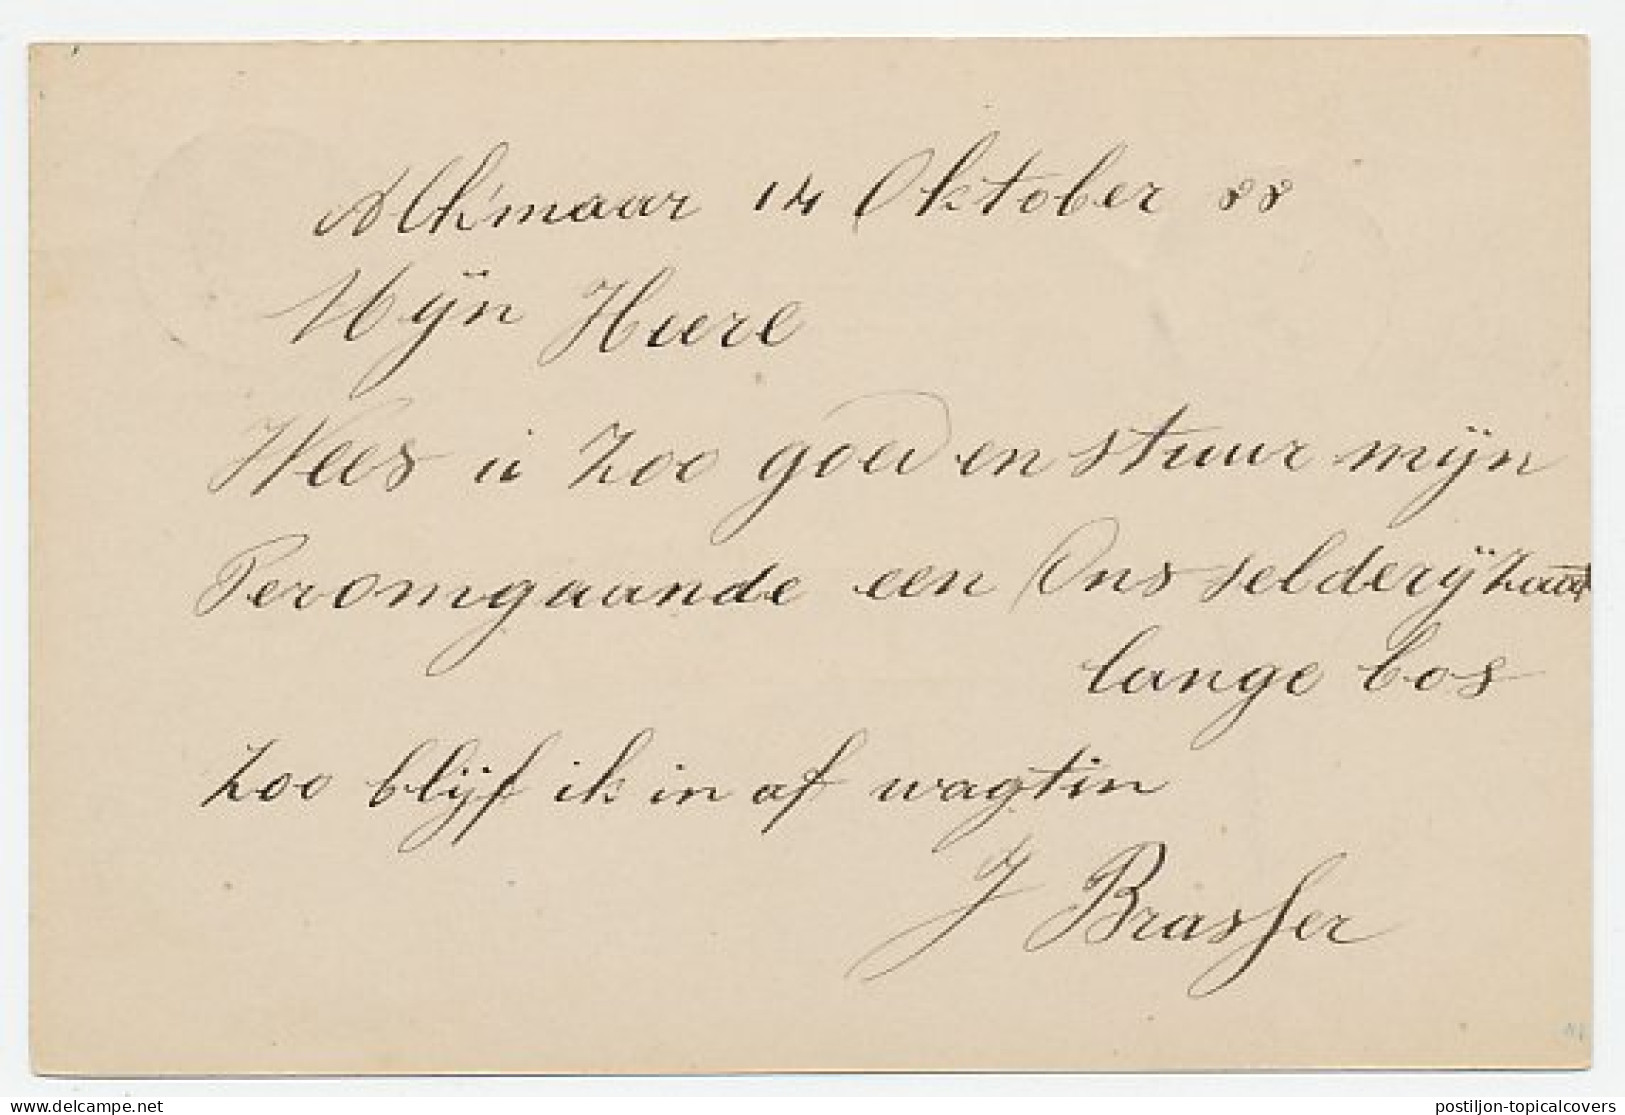 Alkmaar 14 Oktober 88
Mijn Heere
Wees u zoo goed en stuur mijn
Peromgaande een Ons selderijzaad
lange bos
Zoo blijf ik in af wagtin
J Brasser
delcampe.net
postiljon-topicalcovers